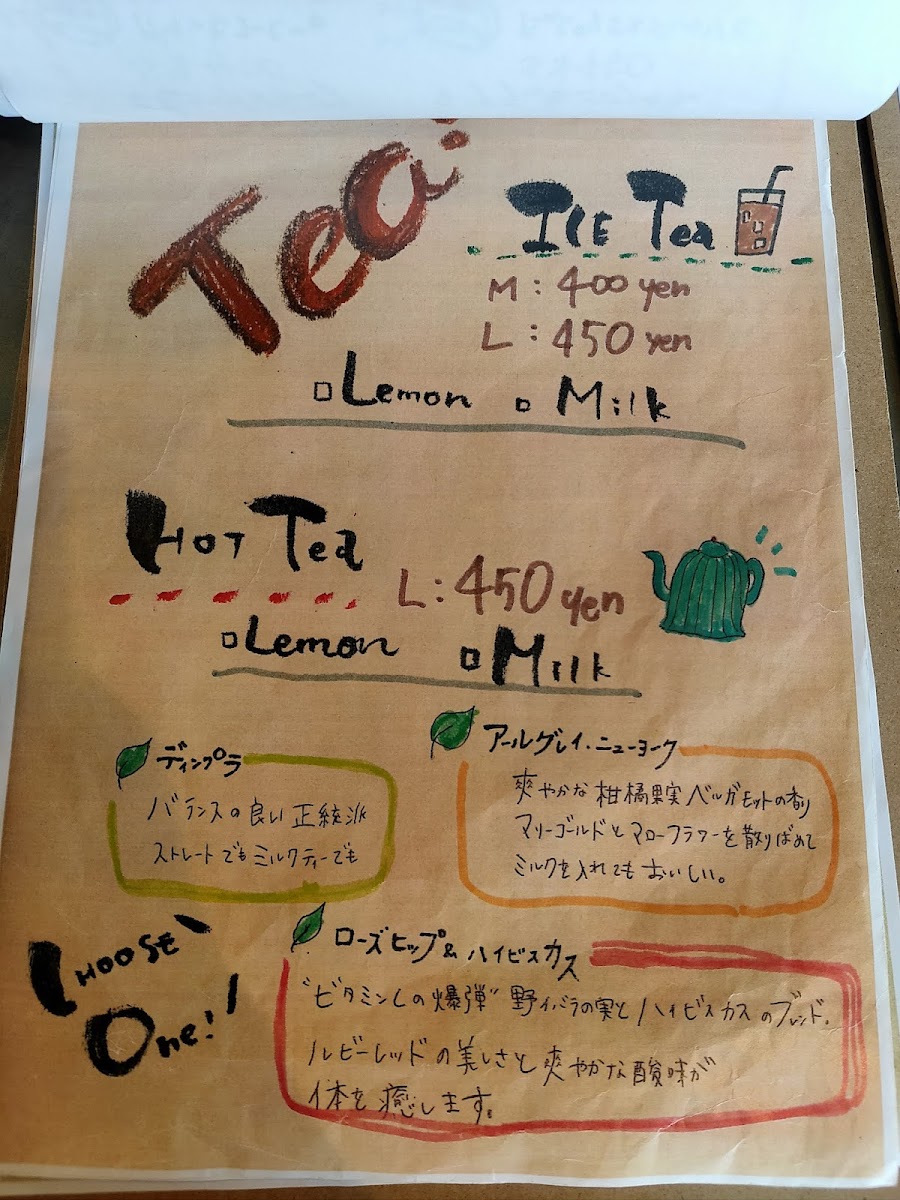 Tea:
ICE Tea
M : 400 yen
L : 450 yen
□ Lemon □ Milk
HOT Tea
L : 450 yen
□ Lemon □ Milk
ディンプラ
バランスの良い正統派
ストレートでもミルクティーでも
アールグレイ・ニューヨーク
爽やかな柑橘果実ベルガモットの香り
マリーゴールドとマローフラワーを散りばめて
ミルクを入れてもおいしい。
CHOOSE
One!
ローズヒップ&ハイビスカス
"ビタミンCの爆弾"野イバラの実とハイビスカスのブレンド。
ルビーレッドの美しさと爽やかな酸味が
体を癒します。